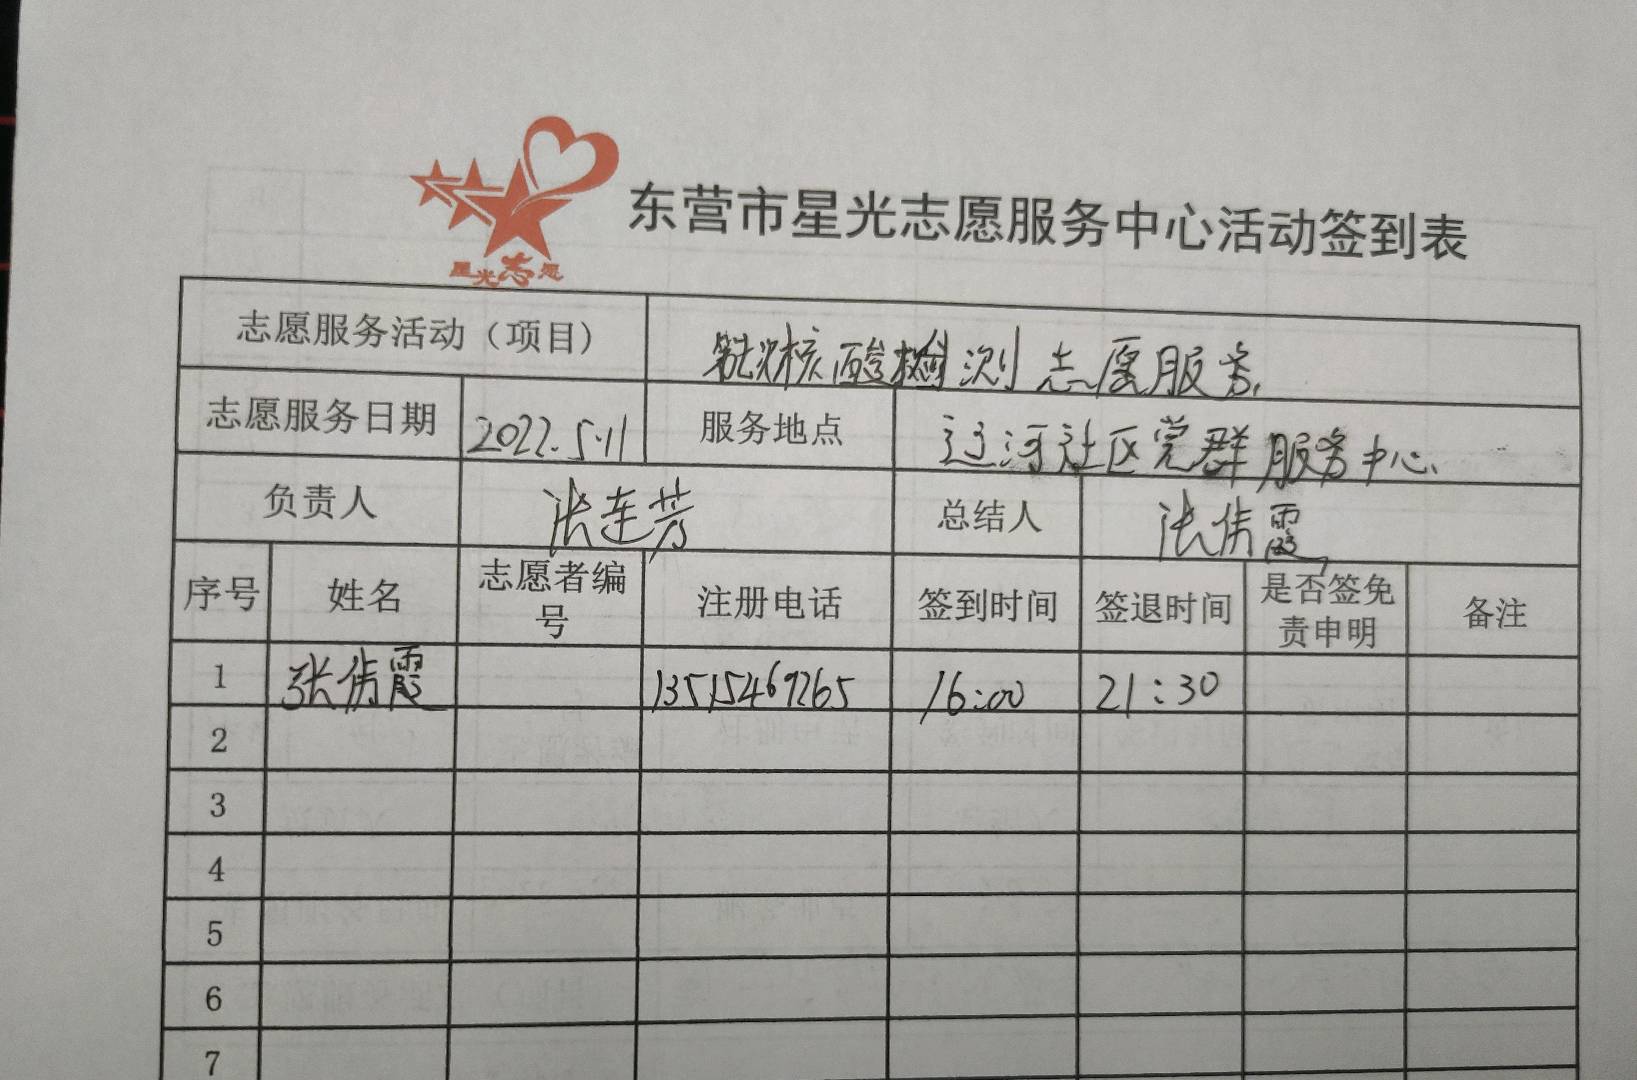 星光志愿
东营市星光志愿服务中心活动签到表
志愿服务活动（项目） 核酸检测志愿服务
志愿服务日期 2022.5.11 服务地点 过河社区党群服务中心
负责人 张连芳 总结人 张倩霞
序号 姓名 志愿者编号 注册电话 签到时间 签退时间 是否签免责申明 备注
1 张倩霞 13515469265 16:00 21:30
2
3
4
5
6
7